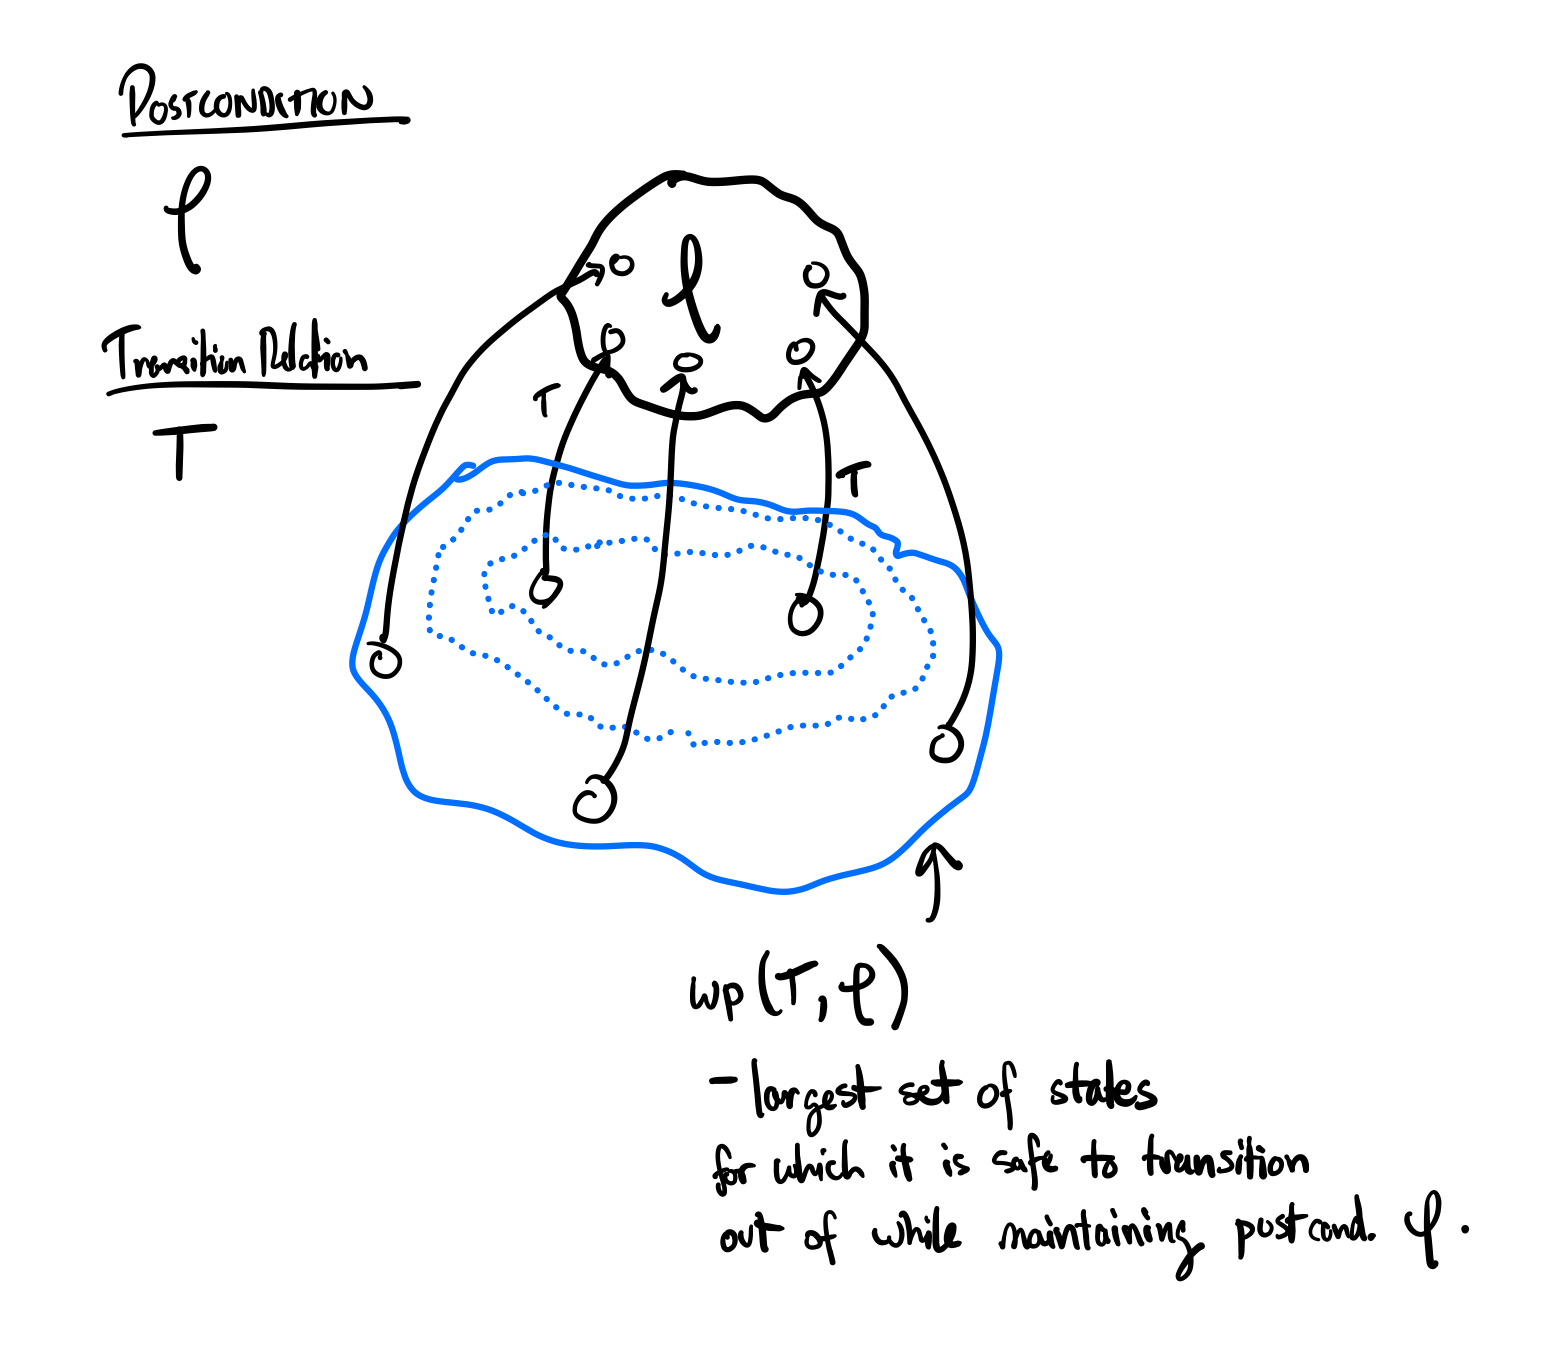 POSTCONDITION
φ
Transition Relation
T
φ
T
T
wp(T, φ)
- largest set of states
for which it is safe to transition
out of while maintaining postcond. φ.